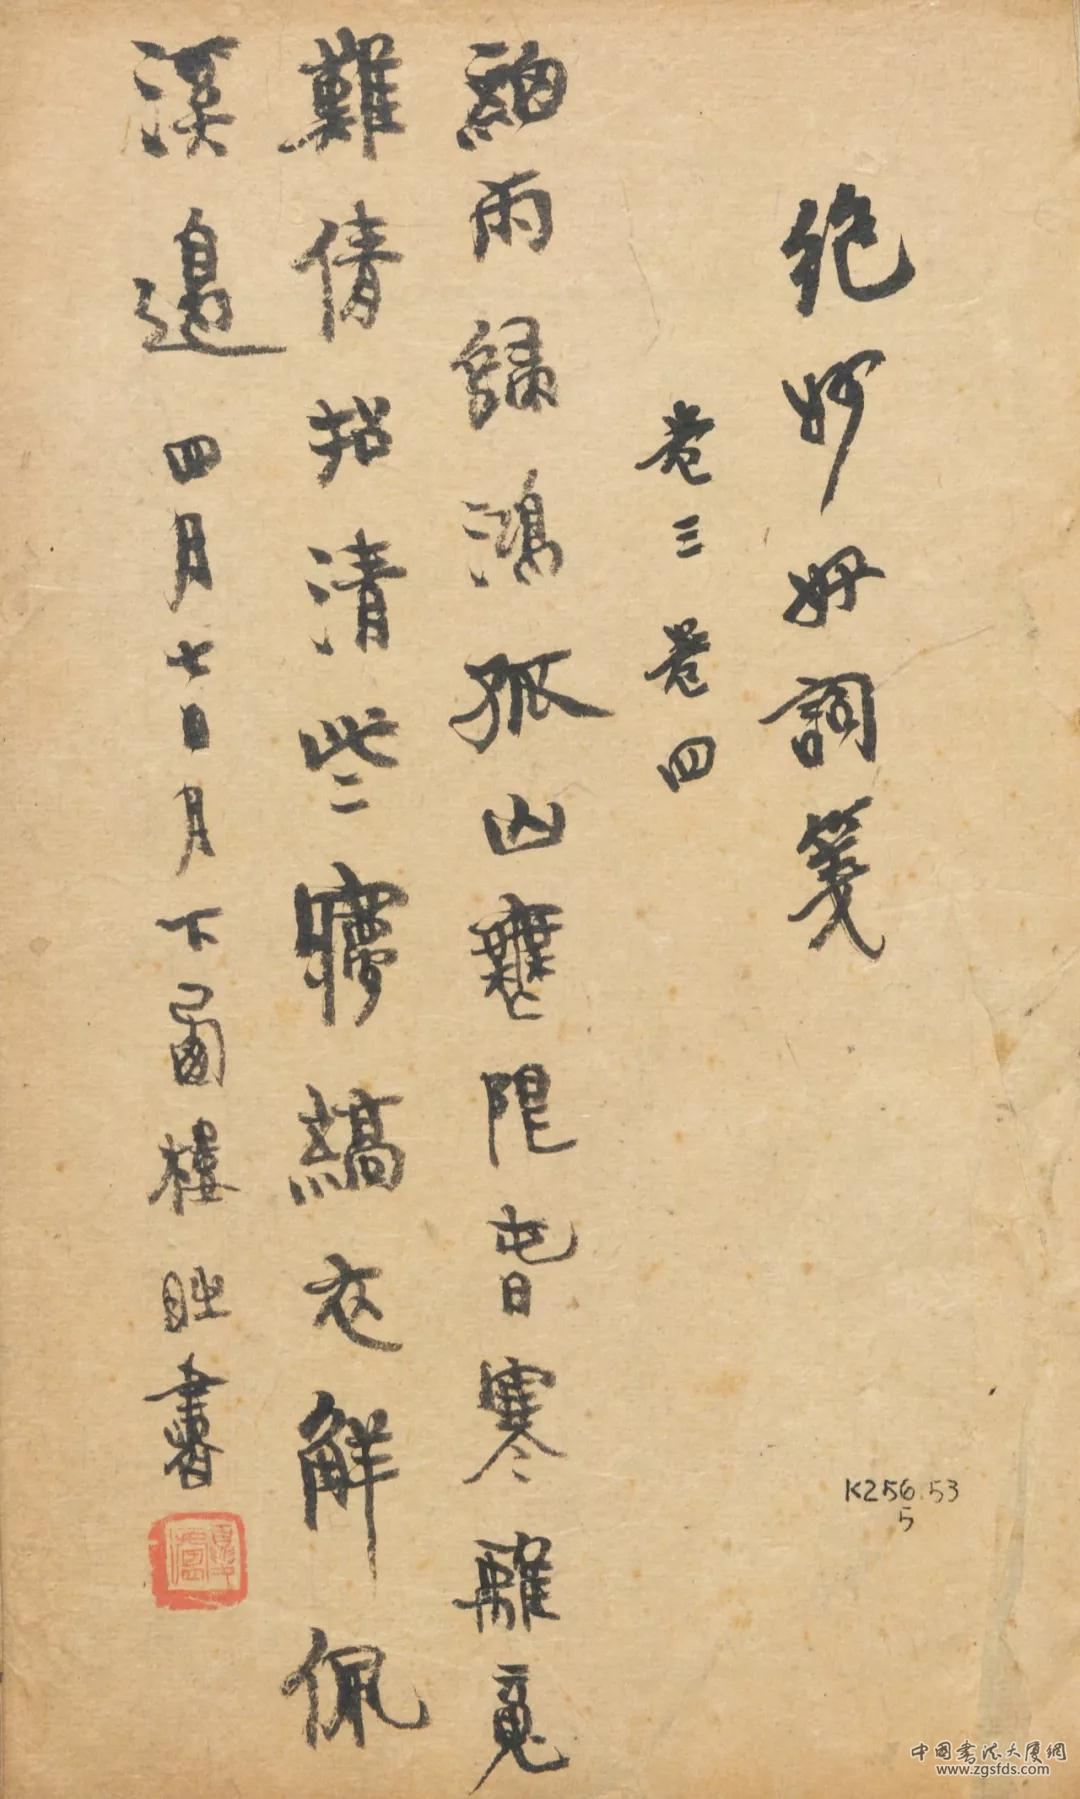 絶妙好詞箋
卷三卷四
細雨歸鴻孤山無限旾寒離魂
難倩招清些夢縞衣解佩
溪邊 四月七日月下樓書
K256.53
5
中国书法大厦網
www.zgsfds.com